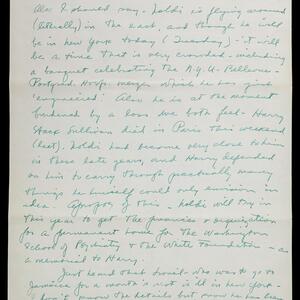 Also I should say - Loldi is flying around
(literally) in the east, and though he will
be in New York today (Tuesday) - it will
be a time that is very crowded - including
a banquet celebrating the N.Y.U - Bellevue -
Postgrad. Hosp. merger which he had just
"engineered". Also he is at the moment
burdened by a loss we both feel - Harry
Stack Sullivan died in Paris this weekend
(last). Loldi had become very close to him
in these late years, and Harry depended
on him to carry through practically many
things he himself could only envision in
idea. Apropos of this - Loldi will try in
this year to get the promise & organization
for a permanent home for the Washington
School of Psychiatry & the White Foundation - as
a memorial to Harry.
Just heard that - who was to go to
Jamaica for a month's rest is ill in New York -
I don't know the details but